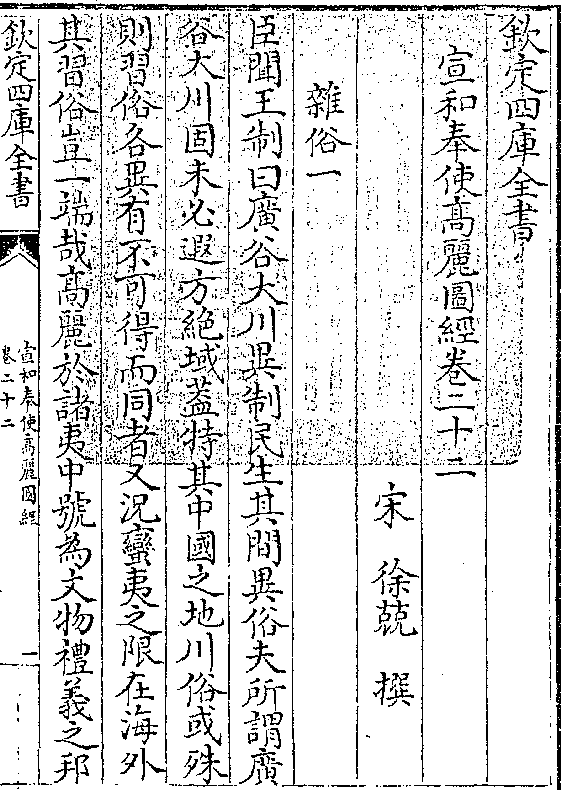 欽定四庫全書
宣和奉使髙麗圖經卷二十二
宋　徐兢　撰
雜俗一
臣聞王制曰廣谷大川異制民生其間異俗夫所謂廣
谷大川固未必遐方絶域葢特其中國之地川俗或殊
則習俗各異有不可得而同者又況蠻夷之限在海外
其習俗豈一端哉髙麗於諸夷中號為文物禮義之邦
欽定四庫全書
宣和奉使髙麗圖經
卷二十二
一